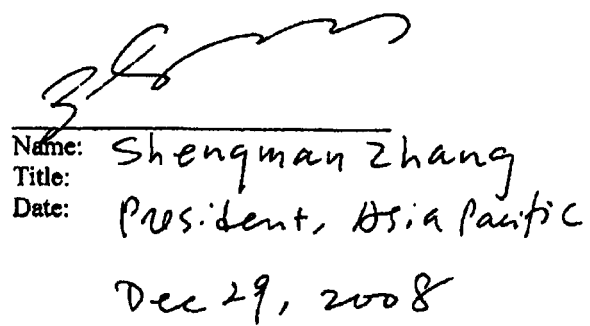 Name: Shengman Zhang
Title:
Date: President, Asia Pacific
Dec 29, 2008